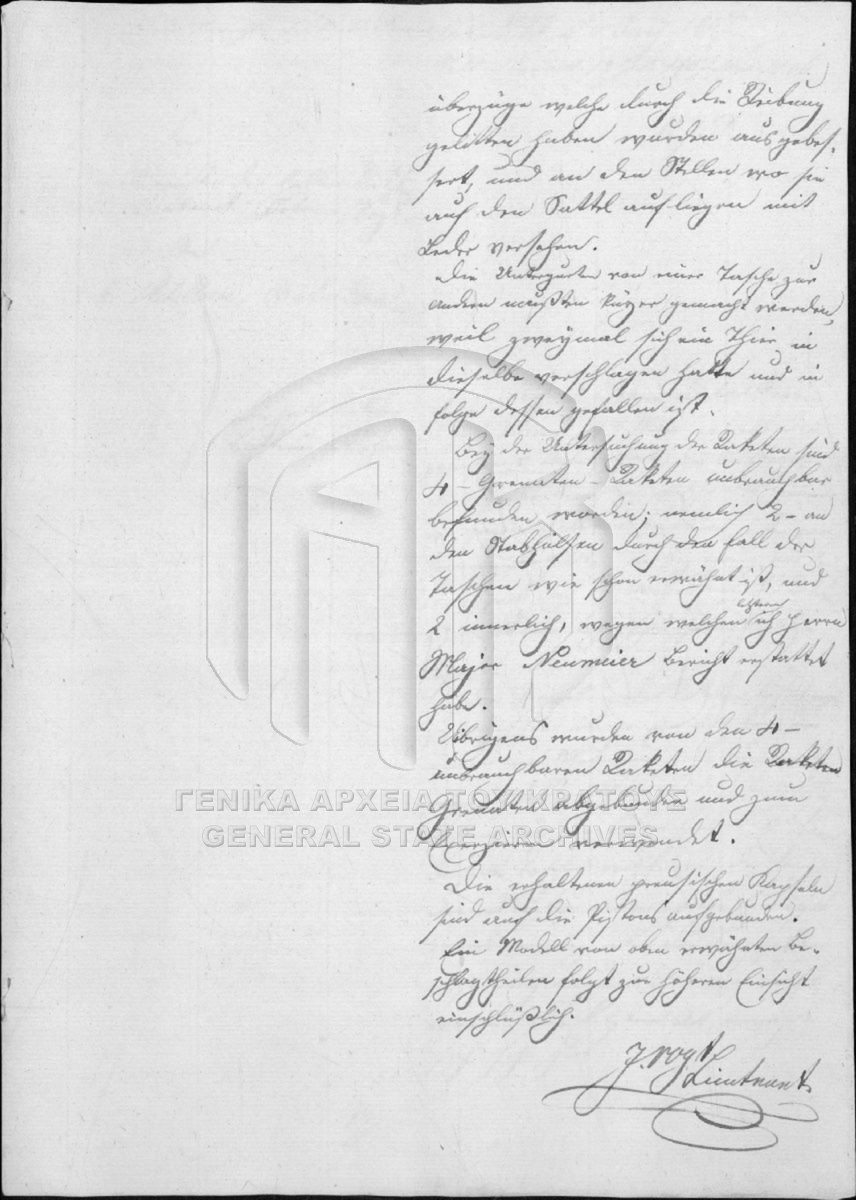 überzüge welche durch die Reibung
gelitten haben wurden ausgebes-
sert, und an den Stellen wo sie
auf den Sattel aufliegen mit
Leder versehen.
Die Untergurten von einer Tasche zur
andern mußten kürzer gemacht werden,
weil zweymal sich ein Thier in
dieselbe verschlagen hatte und in
folge dessen gefallen ist.
Bey der Untersuchung der Raketen sind
4 - Grenaten - Raketen unbrauchbar
befunden worden; nemlich 2 - an
den Stabhülsen durch den Fall der
Taschen wie schon erwähnt ist, und
letztern
2 innerlich, wegen welchen ich Herrn
Major Neumeier Bericht erstattet
habe.
Übrigens wurden von den 4 -
unbrauchbaren Raketen die Raketen
Grenaten abgebunden und zum
Exerzieren verwendet.
Die erhaltenen preusischen Kapseln
sind auf die Pistons aufgebunden.
Ein Modell von oben erwähnten Be-
schlagtheilen folgt zur höheren Einsicht
einschlüßlich.
J. Vogt
Lieutnant.
ΓΕΝΙΚΑ ΑΡΧΕΙΑ ΤΟΥ ΚΡΑΤΟΥΣ
GENERAL STATE ARCHIVES